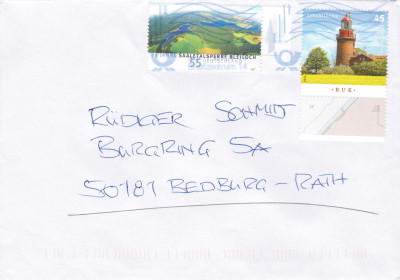 JAHRE SAALETALSPERRE BLEILOCH
55
45
BUK
RÜDIGER SCHMIDT
BURGRING 5A
50181 BEDBURG-RATH